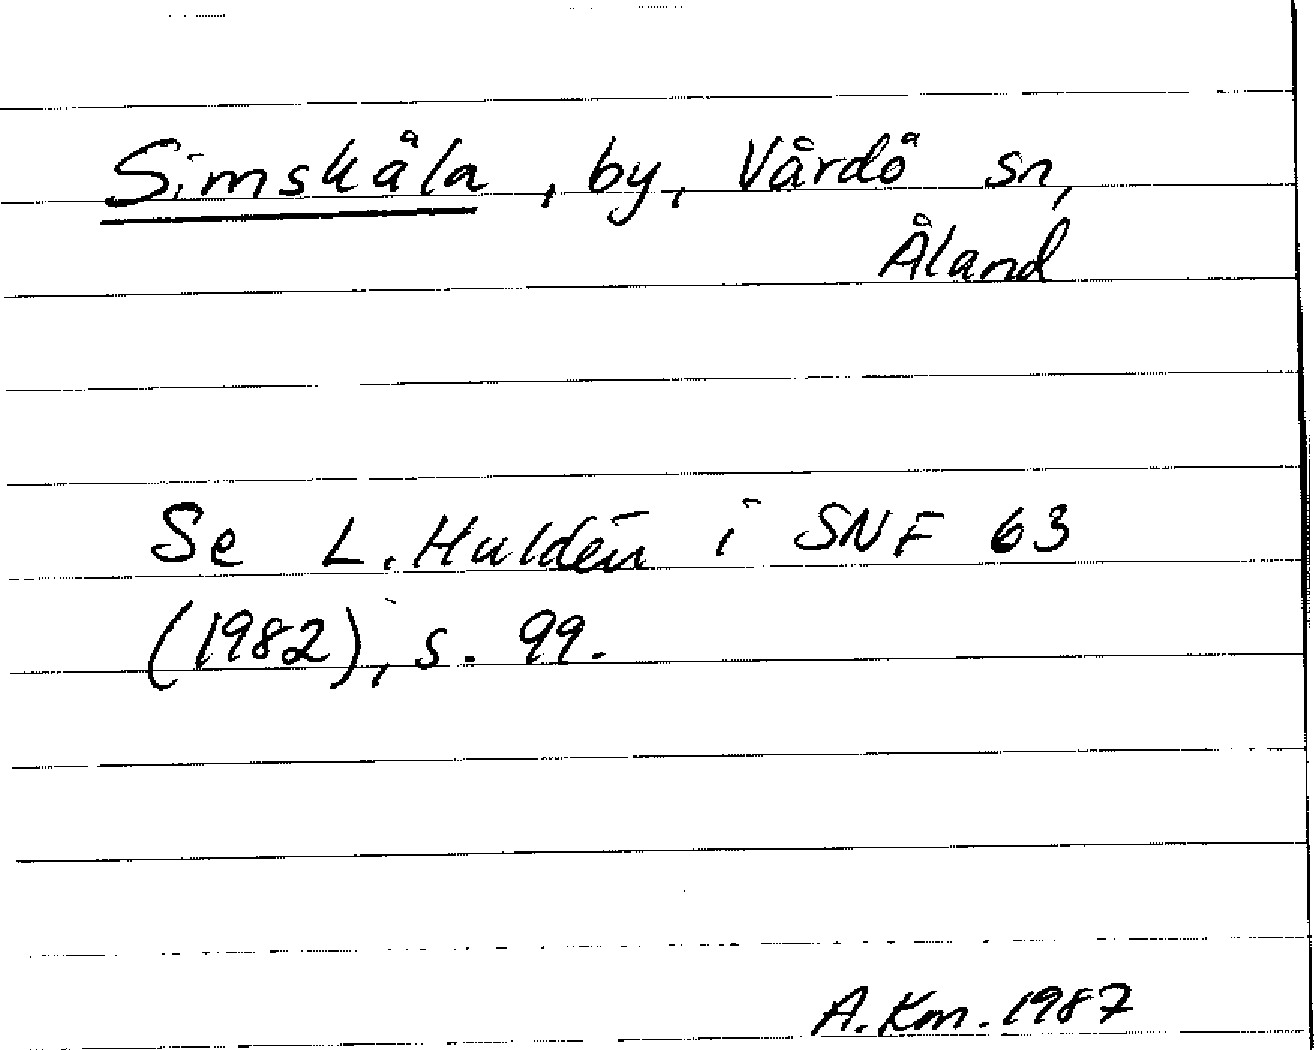 Simskåla, by, Vårdö sn,
Åland
Se L. Huldén i SNF 63
(1982), s. 99.
A. Km. 1987